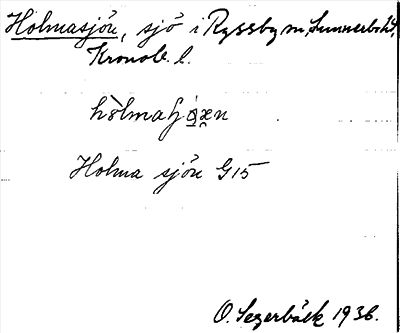 Holmasjön, sjö i Ryssby sn, Sunnerbo hd,
Kronob. l.
Holma sjön G15
O. Segerbäck 1936.